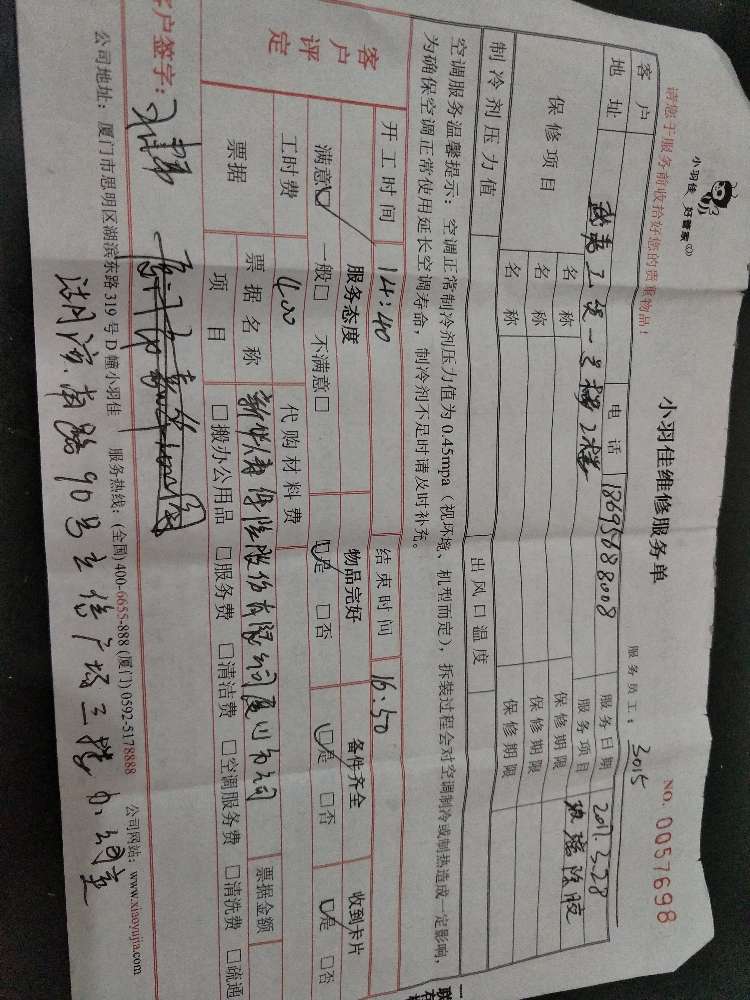 小羽佳 好管家
请您于服务前收拾好您的贵重物品!
小羽佳维修服务单
NO. 0057698
服务员工: 3015
客户 电话 18695688008 服务日期 2017.3.28
地址 一号楼2楼 服务项目 玻璃除胶
保修项目 名称 保修期限
名称 保修期限
名称 保修期限
制冷剂压力值 出风口温度
空调服务温馨提示: 空调正常制冷剂压力值为 0.45mpa (视环境、机型而定), 拆装过程会对空调制冷或制热造成一定影响,
为确保空调正常使用延长空调寿命, 制冷剂不足时请及时补充。
客户评定
开工时间 14:40 结束时间 16:50
服务态度 物品完好 备件齐全 收到卡片
满意☑ 一般□ 不满意□ ☑是 □否 ☑是 □否 ☑是 □否
工时费 400 代购材料费
票据 票据名称 新华人寿保险股份有限公司厦门分公司 票据金额
项目 □搬办公用品 □服务费 □清洁费 □空调服务费 □清洗费 □疏通
客户签字:
公司地址: 厦门市思明区湖滨东路 319 号 D 幢小羽佳 服务热线: (全国) 400-6655-888 (厦门) 0592-5178888 公司网站: www.xiaoyujia.com
湖滨南路90号立信广场三楼办公室